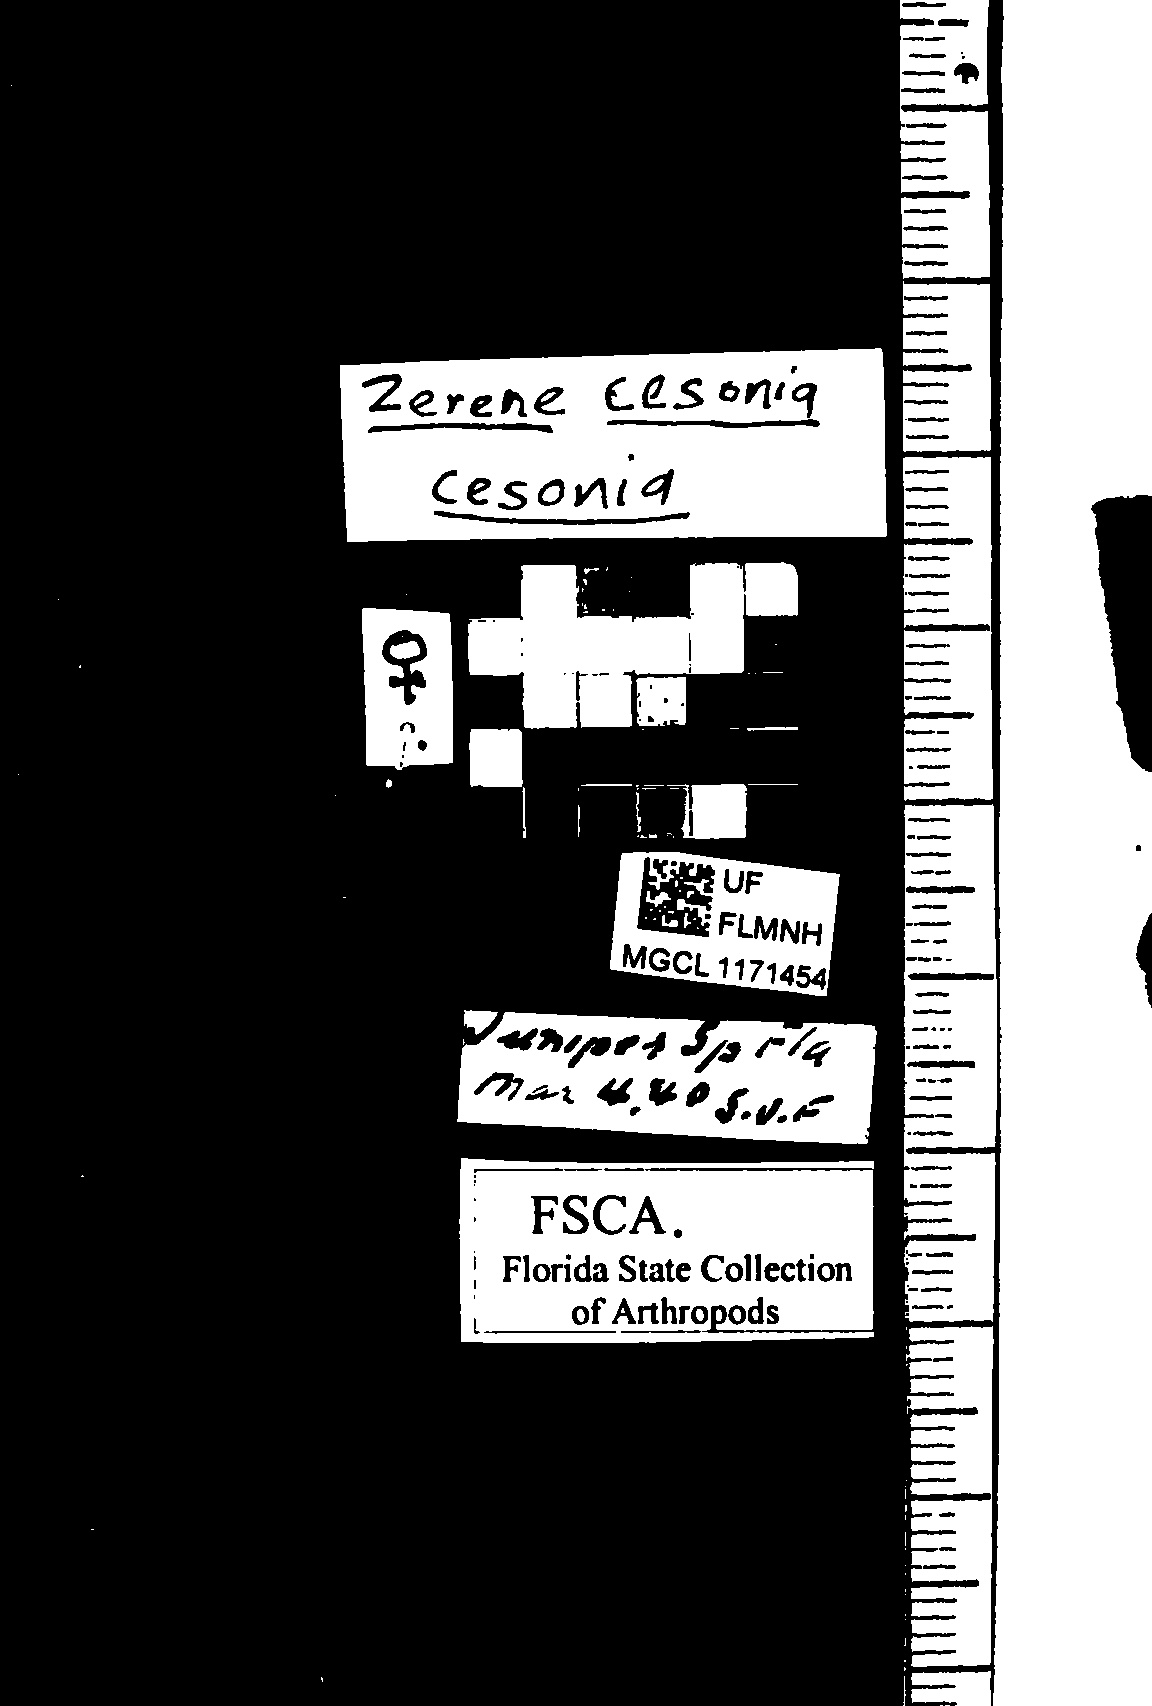 Zerene cesonia
cesonia
♀
UF
FLMNH
MGCL 1171454
Juniper Sp Fla
Mar 4.40 S.V.F
FSCA.
Florida State Collection
of Arthropods